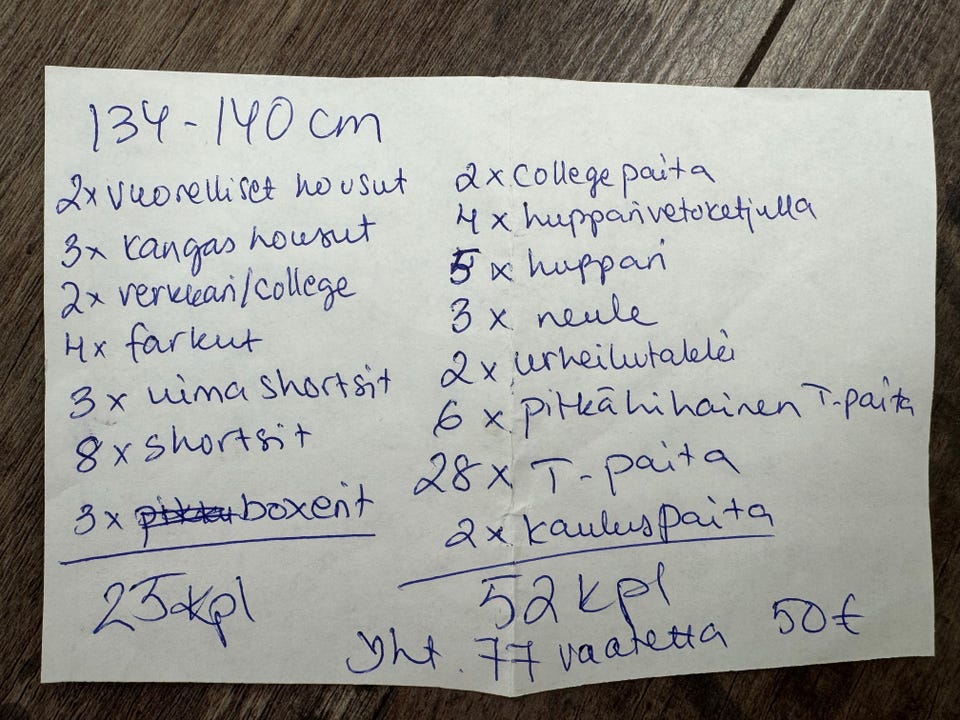 134-140 cm
2x vuorelliset housut
3x kangas housut
2x verkkari/college
4x farkut
3 x uima shortsit
8 x shortsit
3 x boxerit
25 kpl
2 x college paita
4 x huppari vetoketjulla
5 x huppari
3 x neule
2 x urheilutakki
6 x pitkähihainen T-paita
28 x T-paita
2 x kauluspaita
52 kpl
Yht. 77 vaatetta 50€